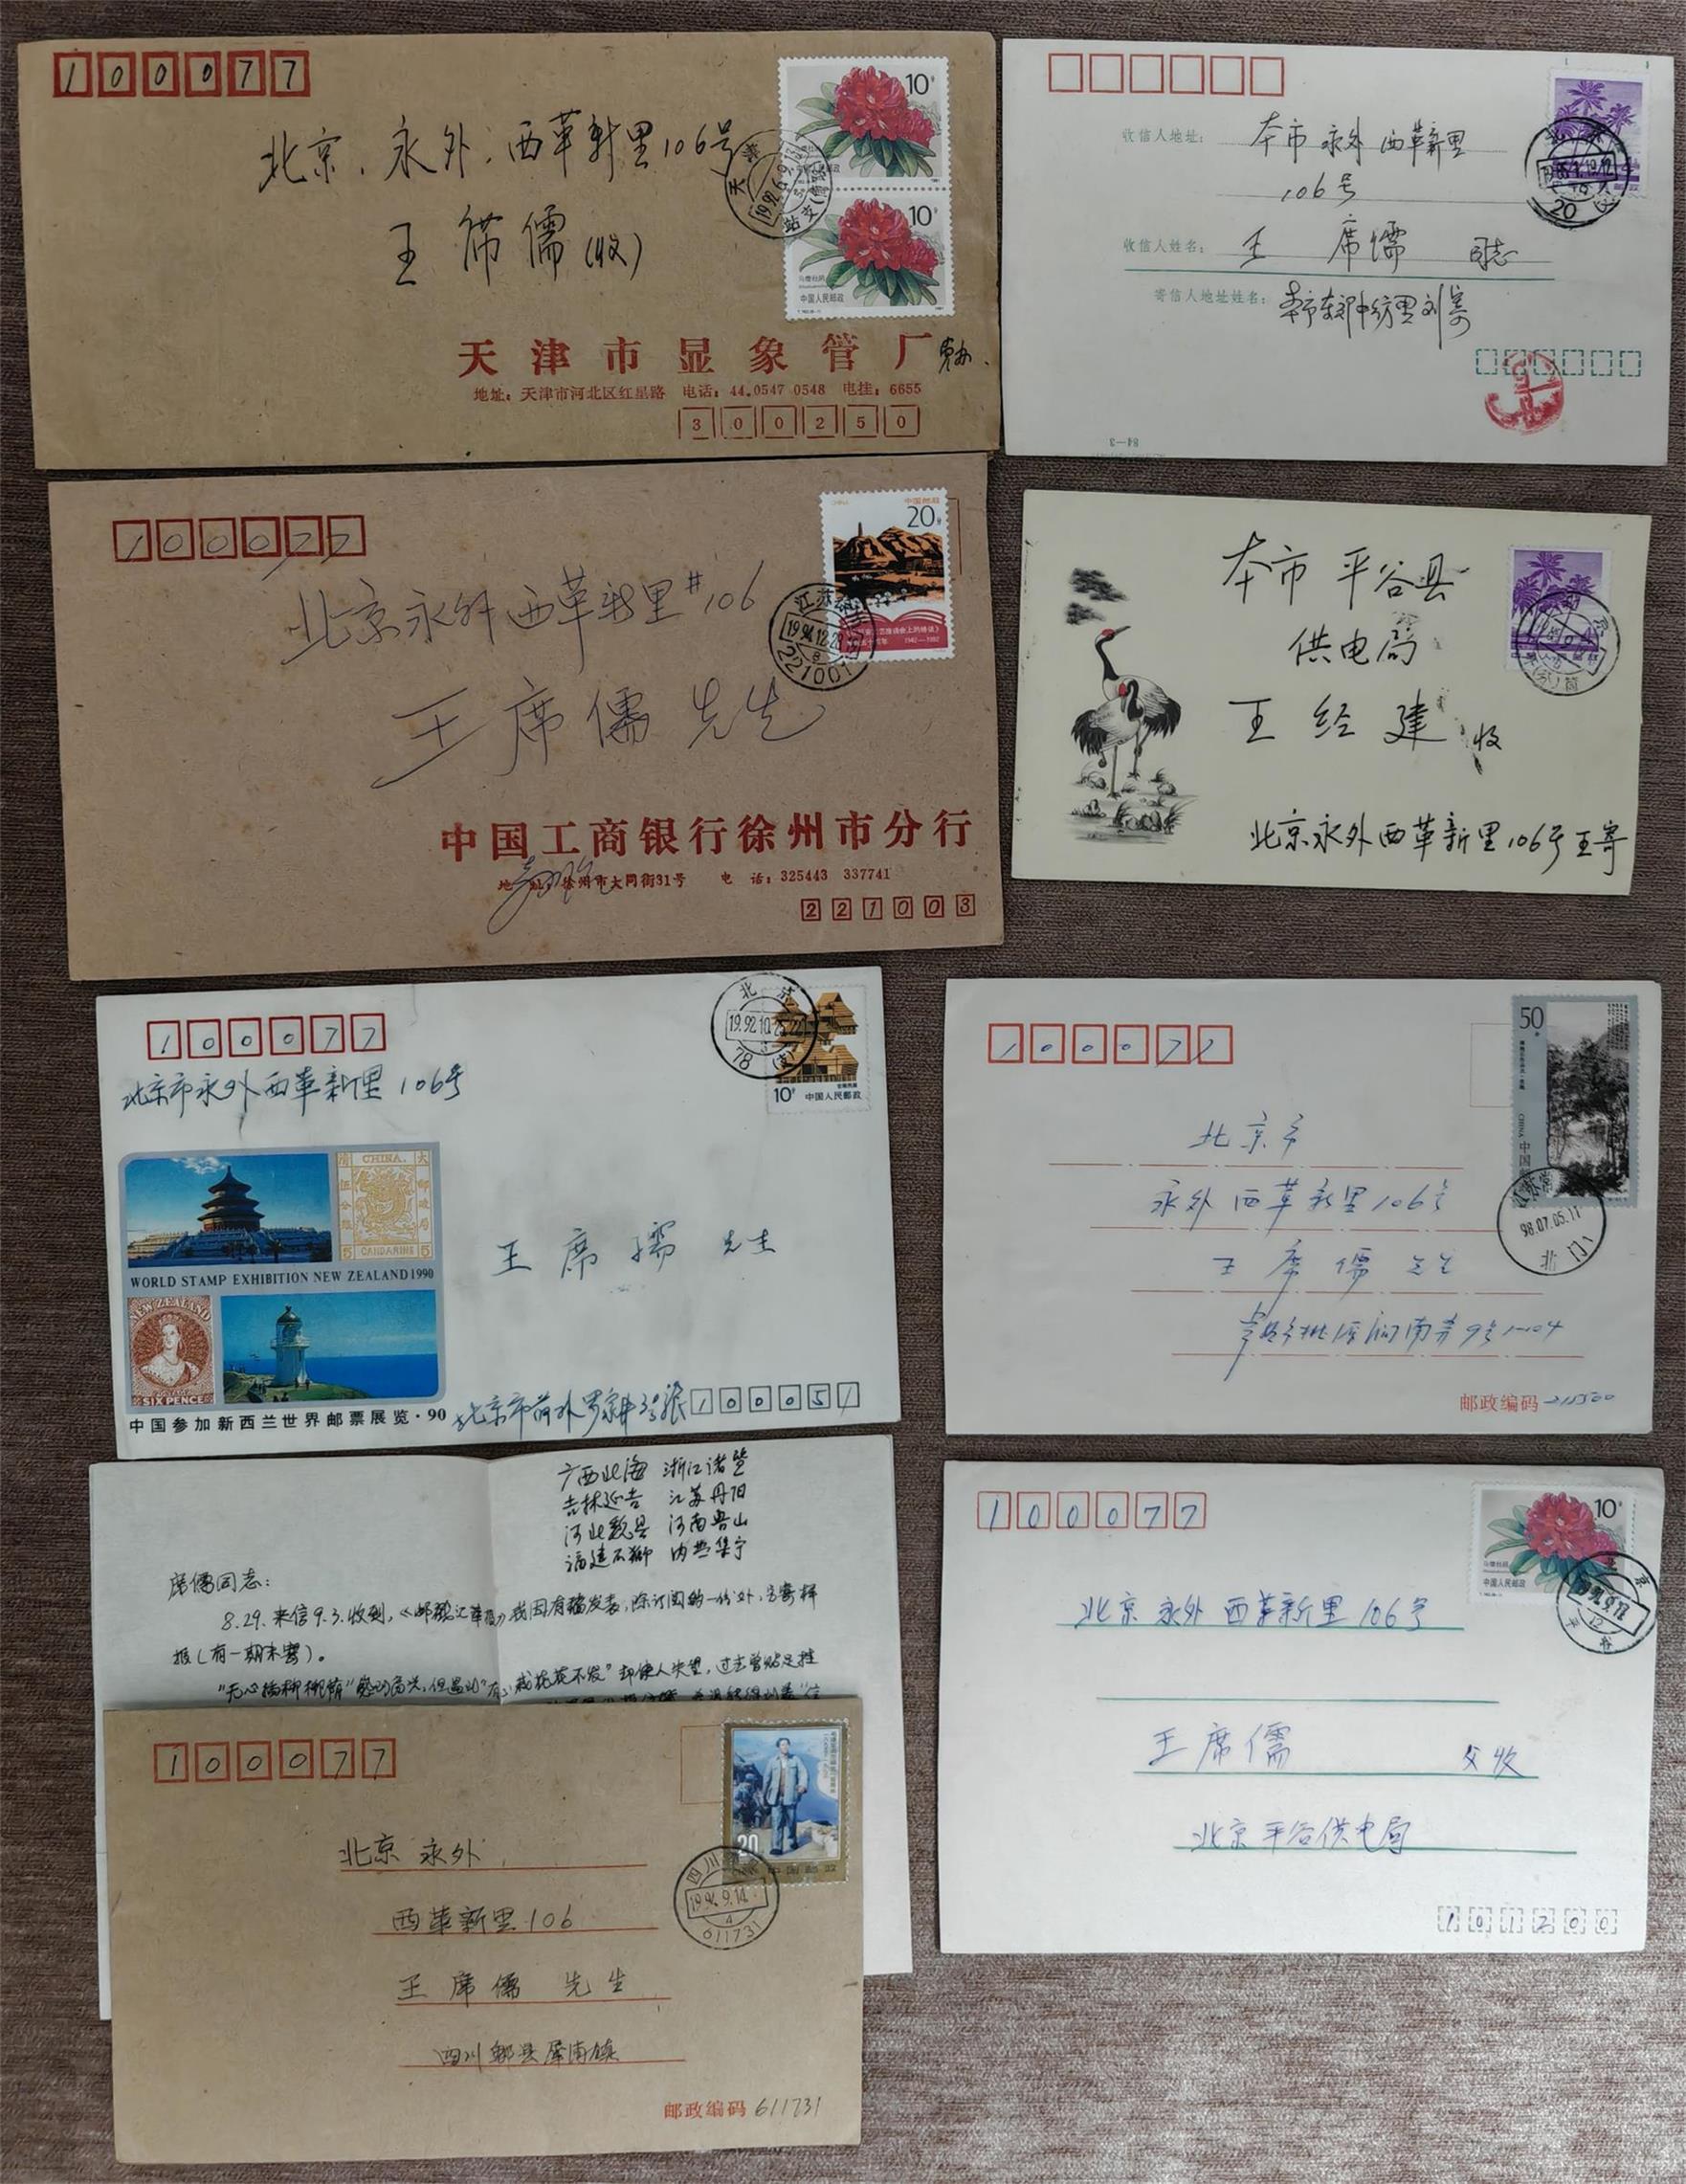 100077
北京.永外.西革新里106号
王席儒(收)
10分
10分
中国人民邮政
天津市显象管厂
地址:天津市河北区红星路 电话:44.0547 0548 电挂:6655
300250
收信人地址: 本市永外西革新里
106号
收信人姓名: 王席儒 同志
寄信人地址姓名:
84-3
100077
北京永外西革新里#106
王席儒先生
中国邮政
20分
江苏
1994.12.28
221001
中国工商银行徐州市分行
地址:徐州市大同街31号 电话:325443 337741
221003
本市平谷县
供电局
王经建 收
北京永外西革新里106号王寄
100077
北京市永外西革新里106号
北京
1992.10
78(支)
10分 中国人民邮政
CHINA.
CANDARINS
WORLD STAMP EXHIBITION NEW ZEALAND 1990
NEW ZEALAND
SIX PENCE
王席儒 先生
中国参加新西兰世界邮票展览·90
100051
100077
50分
CHINA 中国
98.07.05.11
北门
北京市
永外西革新里106号
王席儒先生
邮政编码 215500
广西北海 浙江诸暨
吉林延吉 江苏丹阳
河北魏县 河南鲁山
福建石狮 内蒙集宁
席儒同志:
8.29.来信9.3.收到,《邮票汇华报》我因有稿发表,除订阅的一份外,另寄样
报(有一期未寄)。
100077
10分
中国人民邮政
北京永外西革新里106号
王席儒 父收
北京平谷供电局
101200
100077
20
四川
1994.9.14
611731
北京 永外
西革新里106
王席儒 先生
四川郫县犀浦镇
邮政编码 611731